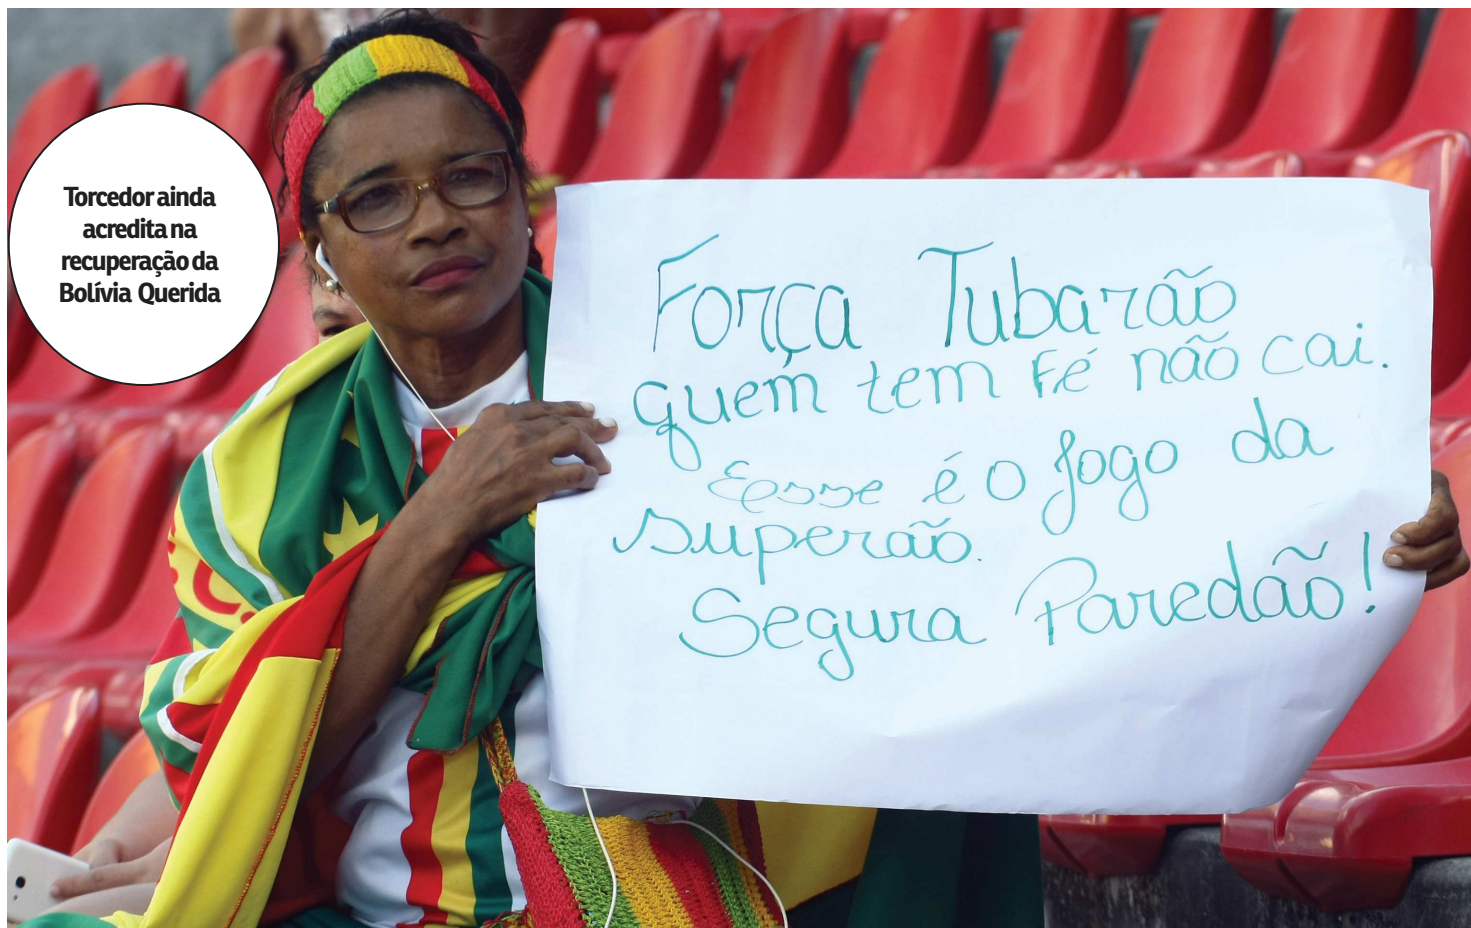 Torcedor ainda
acredita na
recuperação da
Bolívia Querida
Força Tubarão
quem tem Fé não cai.
Esse é o Jogo da
superaão.
Segura Paredão!